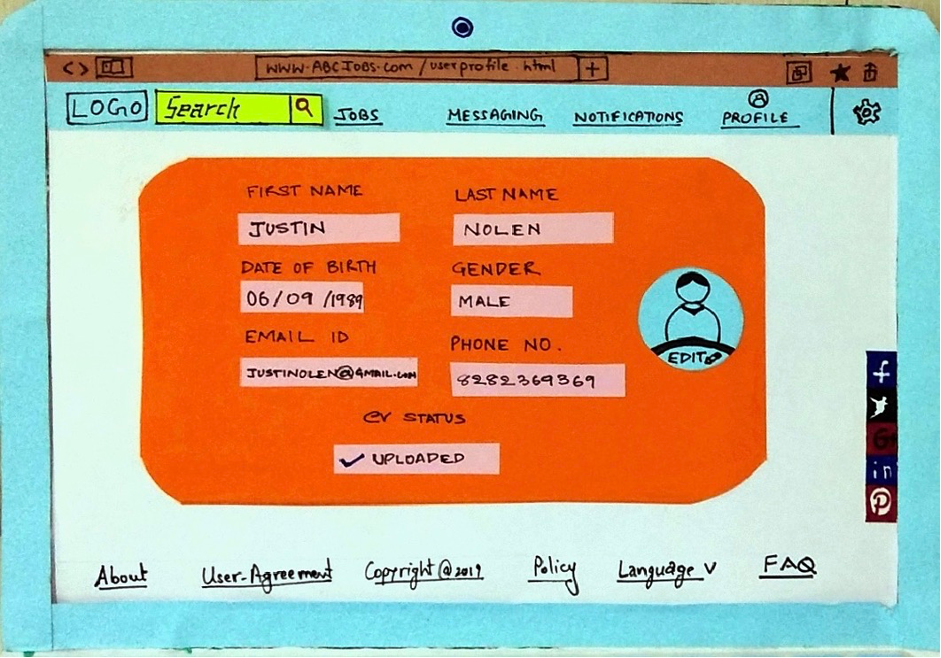 WWW.ABCJOBS.COM/userprofile.html +
LOGO Search JOBS MESSAGING NOTIFICATIONS PROFILE
FIRST NAME LAST NAME
JUSTIN NOLEN
DATE OF BIRTH GENDER
06/09/1989 MALE
EMAIL ID PHONE NO.
JUSTINOLEN@GMAIL.COM 8282369369
EDIT
CV STATUS
✓ UPLOADED
f
G+
in
P
About User-Agreement Copyright @2019 Policy Language V FAQ